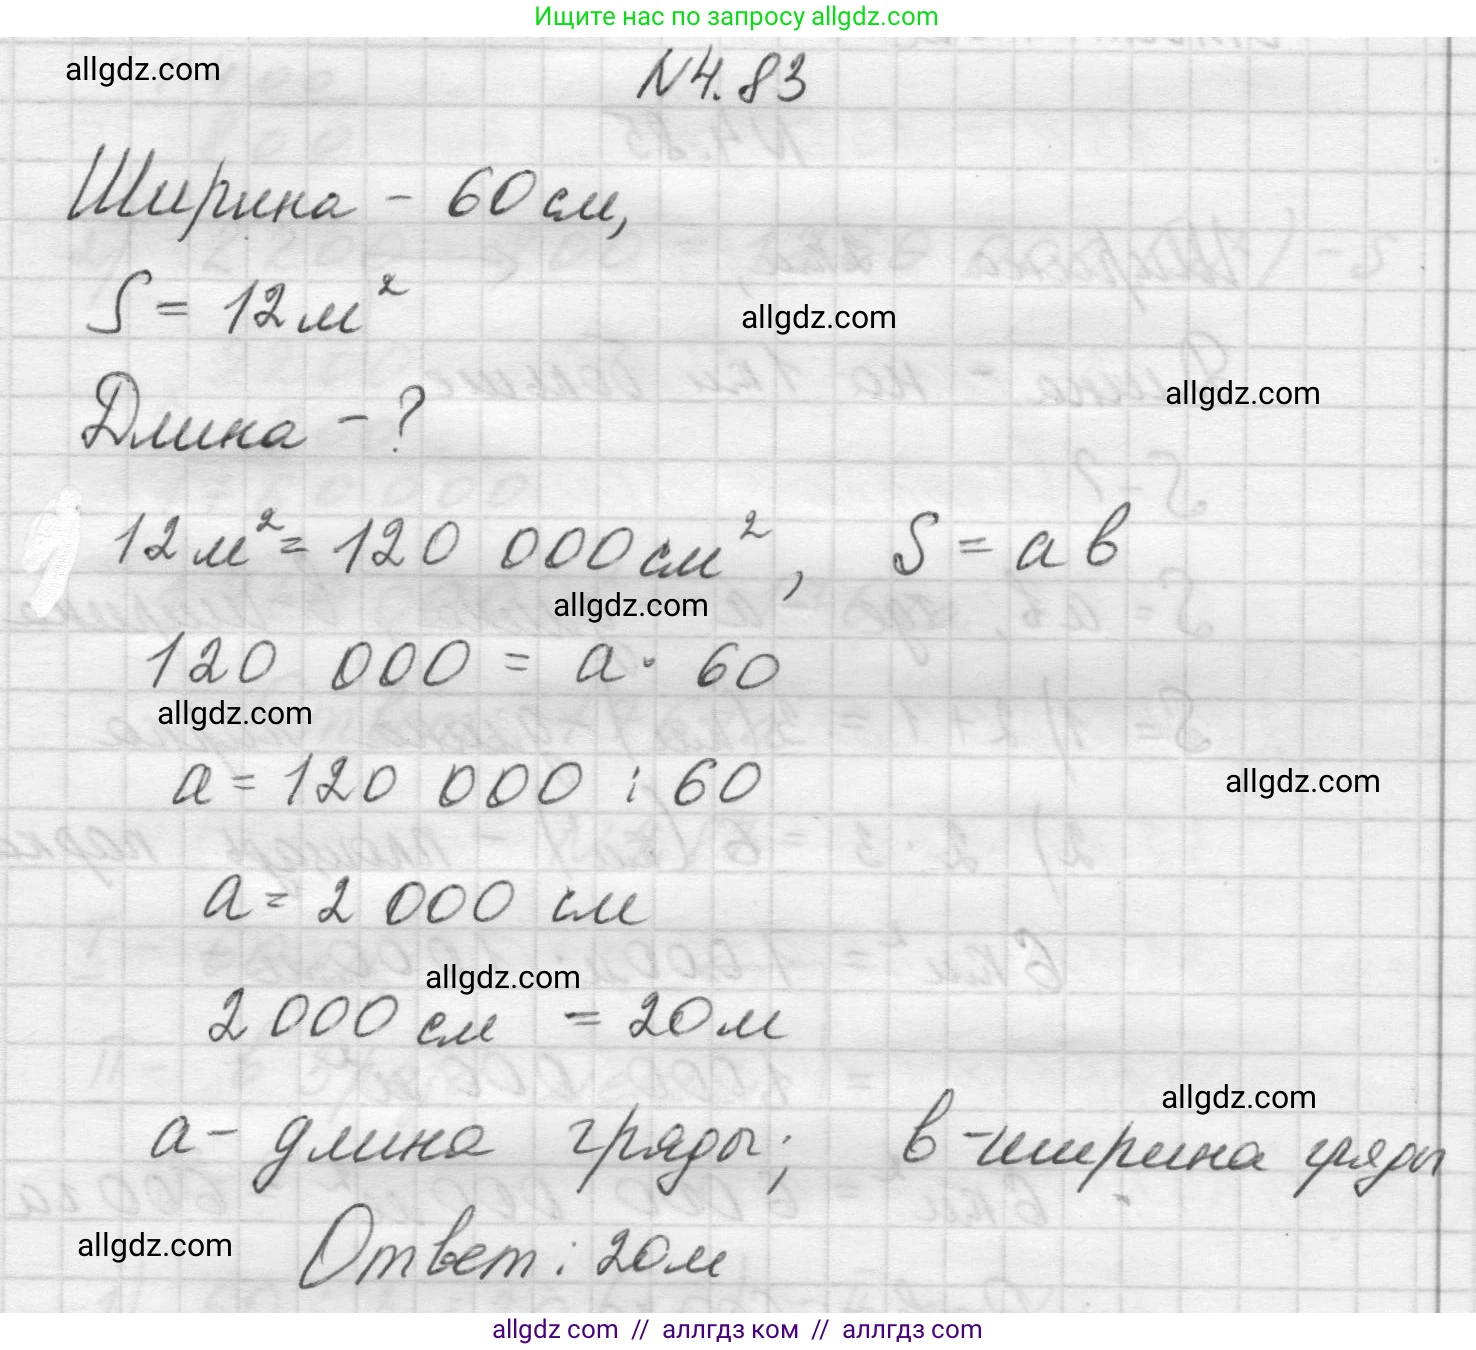 Ищите нас по запросу allgdz.com
allgdz.com
N4.83
Ширина - 60 см,
S = 12 м²
allgdz.com
Длина - ?
allgdz.com
12 м² = 120 000 см², S = a b
allgdz.com
120 000 = a · 60
allgdz.com
a = 120 000 : 60
allgdz.com
a = 2 000 см
allgdz.com
2 000 см = 20 м
allgdz.com
a - длина гряды; b - ширина гряды
allgdz.com
Ответ: 20 м
allgdz com // аллгдз ком // allgdz com